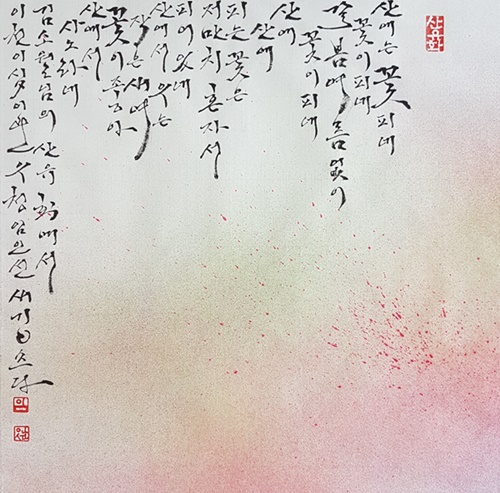 산유화
산에는 꽃 피네
꽃이 피네
갈 봄 여름 없이
꽃이 피네
산에
산에
피는 꽃은
저만치 혼자서
피어 있네
산에서 우는
작은 새여
꽃이 좋아
산에서
사노라네
김소월님의 산유화에서
이천이십이년 임인선 새기고 쓰다